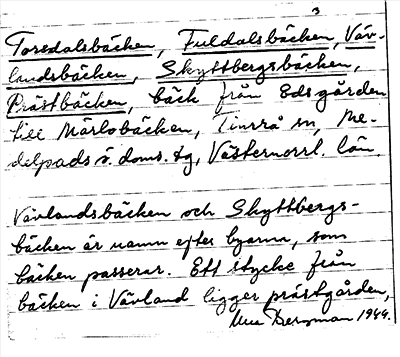 3
Torsdalsbäcken, Fuldalsbäcken, Väv-
landsbäcken, Skyttbergsbäcken,
Prästbäcken, bäck från Edsgården
till Märlobäcken, Timrå sn, Me-
delpads ö. doms. tg, Västernorrl. län.
Vävlandsbäcken och Skyttbergs-
bäcken är namn efter byarna, som
bäcken passerar. Ett stycke från
bäcken i Vävland ligger prästgården,
Bergman 1944.